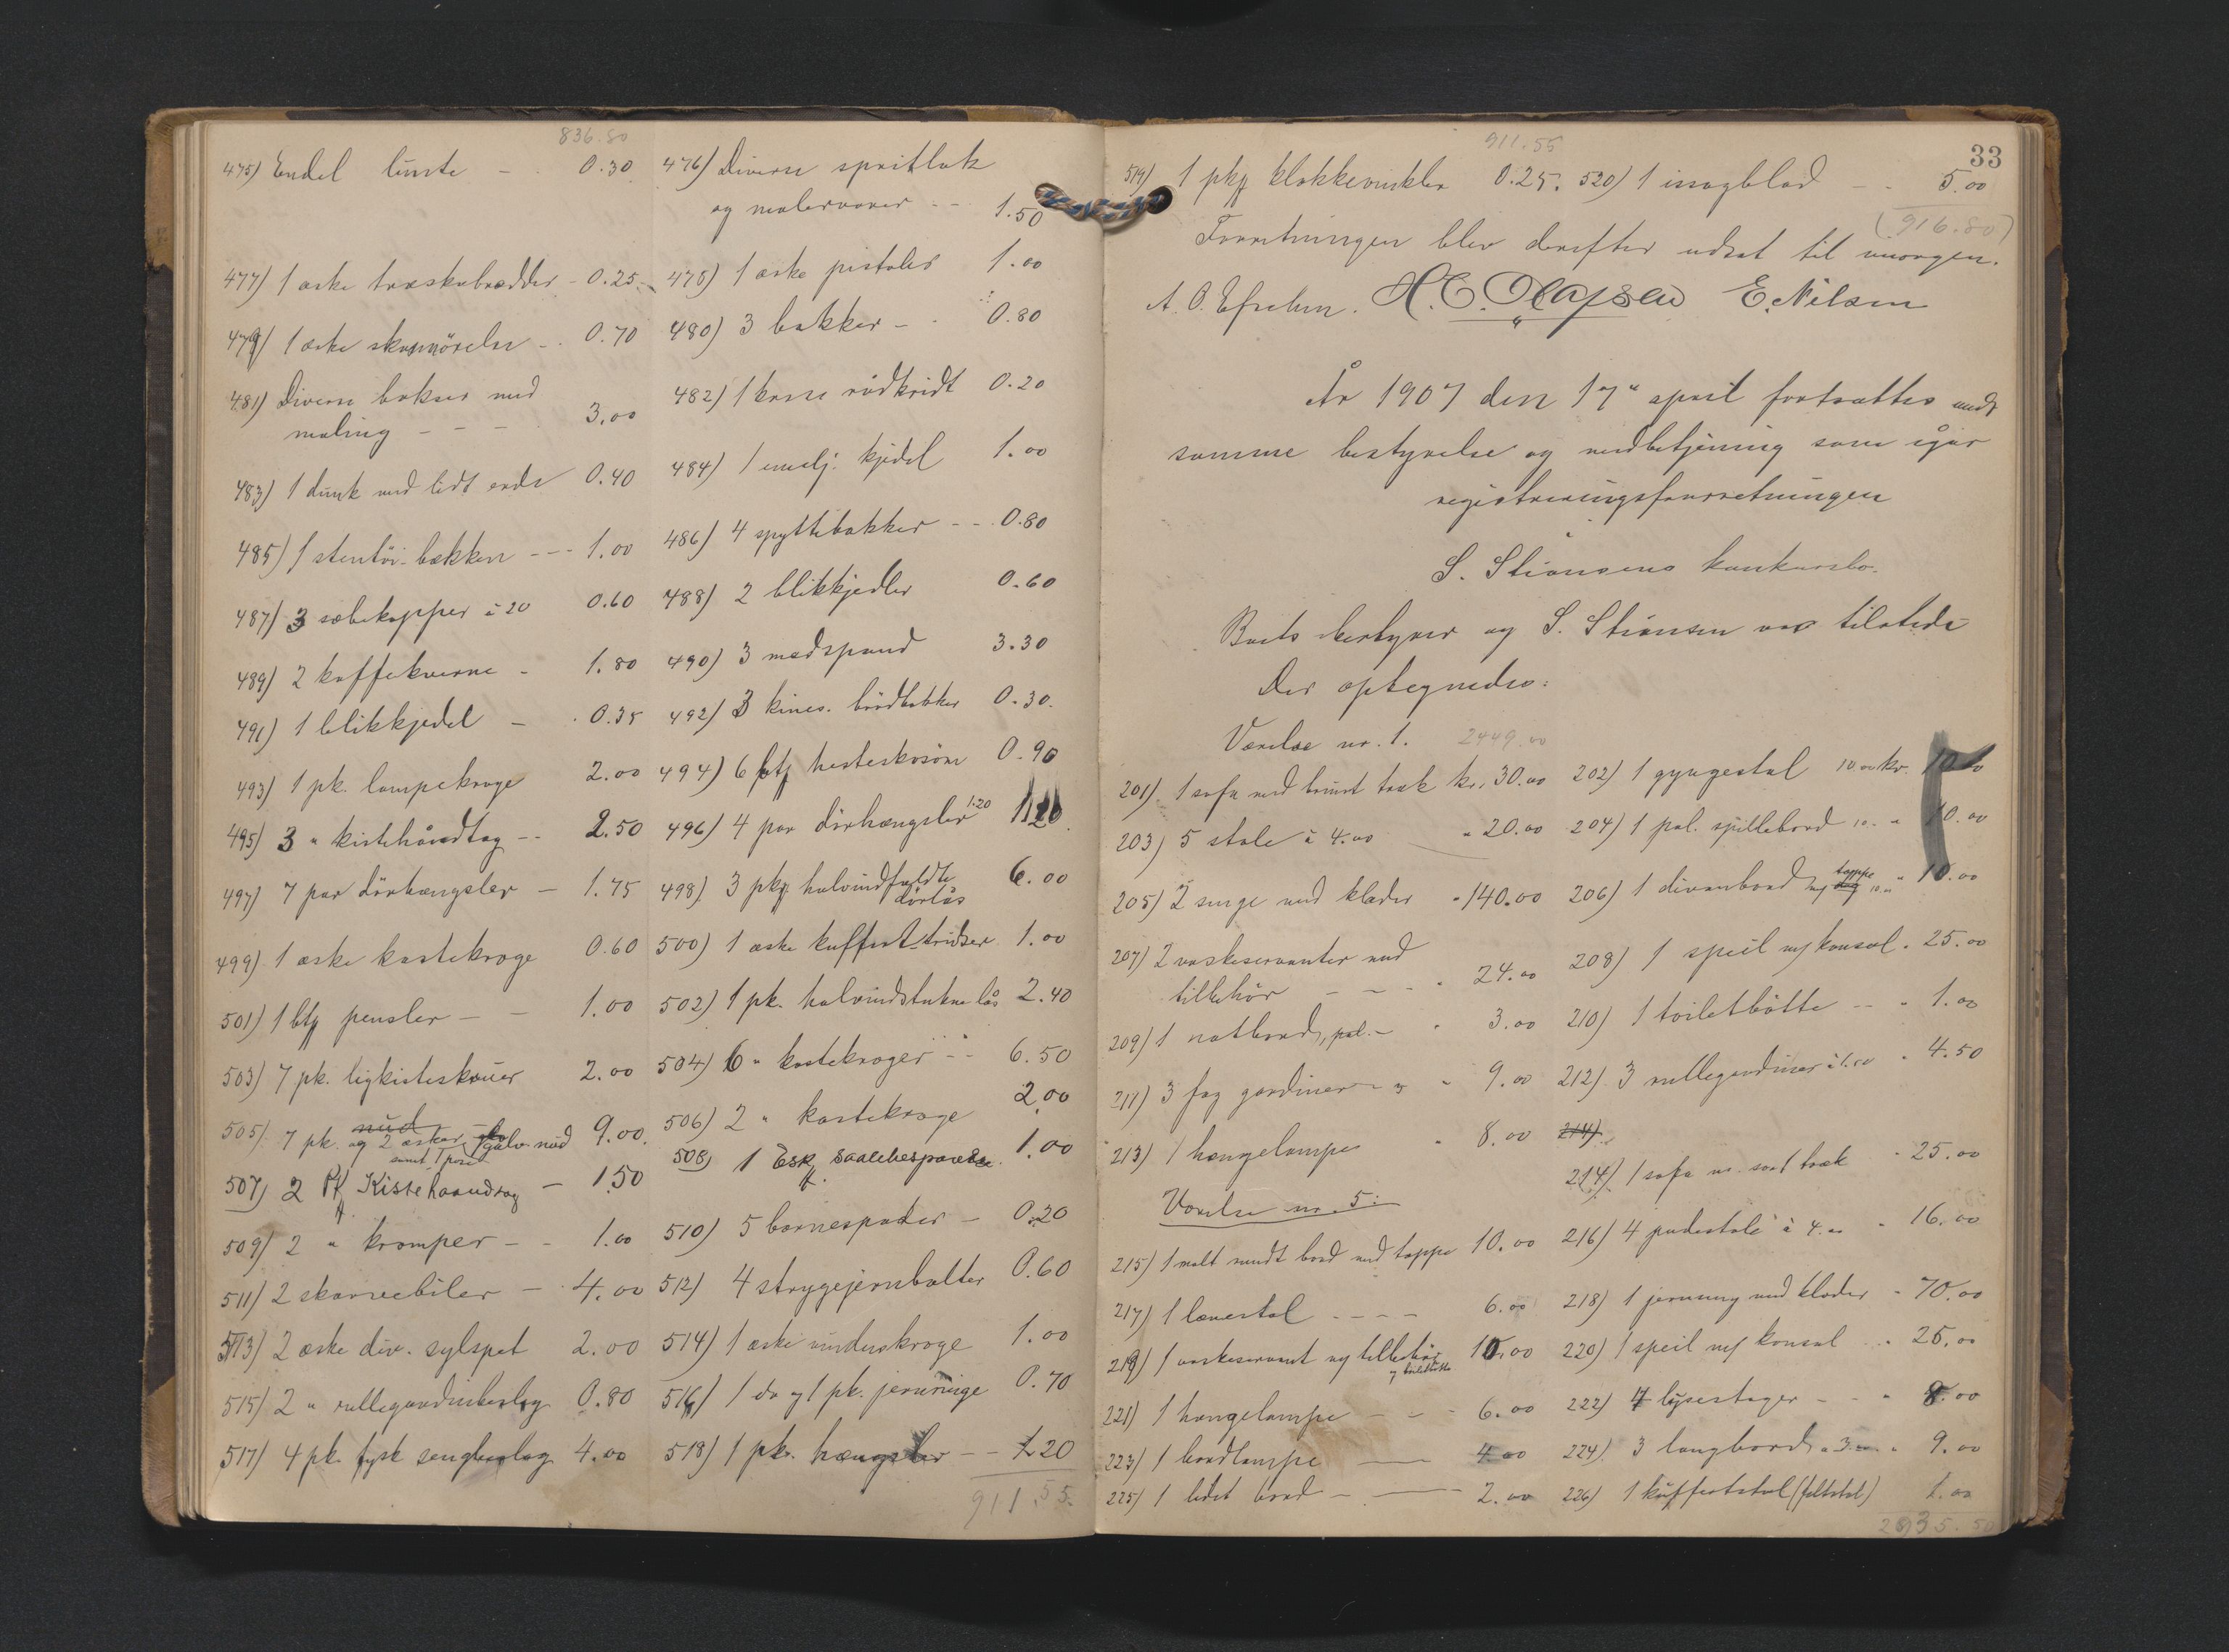 836.80
475) Endel lunte - 0.30 476) Diverse spritlak
og malervarer - - 1.50
477) 1 æske træskobrædder - 0.25 478) 1 æske pistoler 1.00
479) 1 æske - 0.70 480) 3 bakker - 0.80
481) Diverse bokser med
maling - - - 3.00 482) 1 kasse rödkridt 0.20
483) 1 dunk med lidt 0.40 484) 1 emalj. kjedel 1.00
485) 1 stentöi-bækken --- 1.00 486) 4 spyttebakker -- 0.80
487) 3 sæbekopper à 20 0.60 488) 2 blikkjedler 0.60
489) 2 kaffekverne - 1.80 490) 3 madspand 3.30
491) 1 blikkjedel - 0.35 492) 3 kines. brödbakker 0.30.
493) 1 pk. lampekroge 2.00 494) 6 hesteskosöm 0.90
495) 3 " kistehåndtag -- 2.50 496) 4 par dörhængsler 1.20 1.20
497) 7 par dörhængsler - 1.75 498) 3 pkg halvindfældte
dörlås 6.00
499) 1 æske kastekroge 0.60 500) 1 æske kuffert-tridser 1.00
501) 1 pensler - - 1.00 502) 1 pk. halvindstukne lås 2.40
503) 7 pk. ligkisteskruer 2.00 504) 6 " kastekroger -- 6.50
505) 7 pk. og 2 æsker galv. nud 9.00. 506) 2 " kastekroge 2.00
samt 1 pose
507) 2 Pk Kistehaandtag - 1.50 508) 1 Esk 1.00
509) 2 " kramper - - 1.00 510) 5 barnespader - 0.20
511) 2 skarvebiler - 4.00 512) 4 strygejernbolter 0.60
513) 2 æske div. sylspet 2.00 514) 1 æske vinduskroge 1.00
515) 2 " rullegardinbeslag 0.80 516) 1 do og 1 pk. jernringe 0.70
517) 4 pk. tysk sengbeslag 4.00 518) 1 pk. hængsler -- 1.20
911.55
911.55
33
519) 1 pkg klokkevinkler 0.25. 520) 1 issagblad - - 5.00
(916.80)
Forretningen blev derefter udsat til imorgen.
E. Nilsen
År 1907 den 17de april fortsattes med
samme bestyrelse og medbetjening som igår
registreringsforretningen
S. Stiansens konkursbo.
Boets bestyrer og S. Stiansen var tilstede
Der optegnedes:
Værelse nr. 1. 2449.00
201) 1 sofa med brunt træk kr. 30.00 202) 1 gyngestol 10.00 kr. 10.00
203) 5 stole à 4.00 " 20.00 204) 1 pol. spillebord 10.- " 10.00
205) 2 senge med klæder " 140.00 206) 1 divanbord m/ tæppe 10.- " 10.00
207) 2 vaskeservanter med
tillehör - - - " 24.00 208) 1 speil m/ konsol " 25.00
209) 1 natbord, pol. - " 3.00 210) 1 toiletbötte -- " 1.00
211) 3 fag gardiner à 3 " 9.00 212) 3 rullegardiner à 1.50 " 4.50
213) 1 hængelampe " 8.00 214)
214) 1 sofa m. sort træk " 25.00
Værelse nr. 5:
215) 1 malt rundt bord med tæppe 10.00 216) 4 pudestole à 4.00 " 16.00
217) 1 lænestol - - - - 6.00 218) 1 jernseng med klæder " 70.00
219) 1 vaskeservant og tillehör 10.00 220) 1 speil m/ konsol - " 25.00
og toiletbötte
221) 1 hængelampe - - - 6.00 222) 4 lysestager - - " 8.00
223) 1 bordlampe - 4.00 224) 3 langbord à 3.00 " 9.00
225) 1 lidet bord - - 2.00 226) 1 kuffertstol (feltstol) 1.00
2935.50